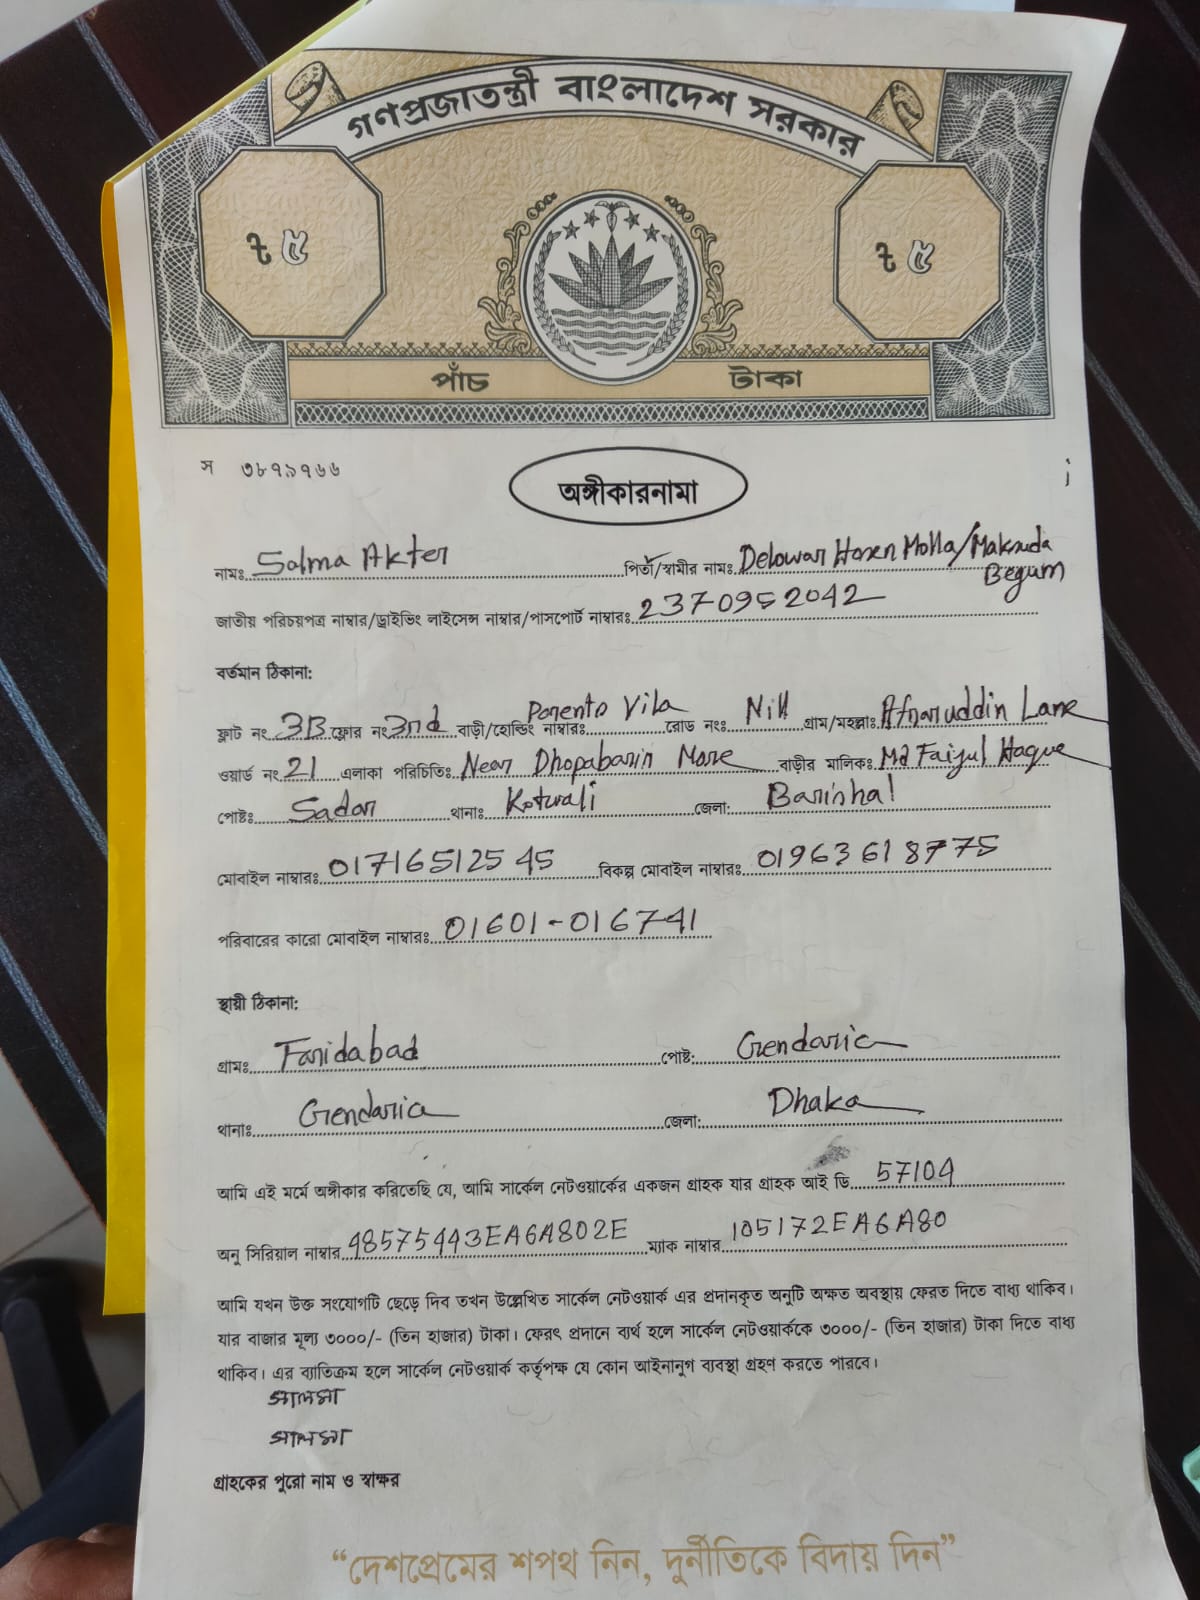 গণপ্রজাতন্ত্রী বাংলাদেশ সরকার
৳ ৫ ৳ ৫
পাঁচ টাকা
স ৩৮৭৯৭৬৬
অঙ্গীকারনামা
নামঃ Salma Akter পিতা/স্বামীর নামঃ Delowar Hosen Molla/Maksuda Begum
জাতীয় পরিচয়পত্র নাম্বার/ড্রাইভিং লাইসেন্স নাম্বার/পাসপোর্ট নাম্বারঃ 2370952042
বর্তমান ঠিকানা:
ফ্লাট নং 3B ফ্লোর নং 3rd বাড়ী/হোল্ডিং নাম্বারঃ Porento Vila রোড নংঃ Nill গ্রাম/মহল্লাঃ Afsaruddin Lane
ওয়ার্ড নং 21 এলাকা পরিচিতিঃ Near Dhopabarir More বাড়ীর মালিকঃ Md Faijul Haque
পোষ্টঃ Sadar থানাঃ Kotwali জেলা: Barishal
মোবাইল নাম্বারঃ 01716512545 বিকল্প মোবাইল নাম্বারঃ 01963618775
পরিবারের কারো মোবাইল নাম্বারঃ 01601-016741
স্থায়ী ঠিকানা:
গ্রামঃ Faridabad পোষ্ট: Gendaria
থানাঃ Gendaria জেলা: Dhaka
আমি এই মর্মে অঙ্গীকার করিতেছি যে, আমি সার্কেল নেটওয়ার্কের একজন গ্রাহক যার গ্রাহক আই ডি 57104
অনু সিরিয়াল নাম্বার 48575443EA6A802E ম্যাক নাম্বার 105172EA6A80
আমি যখন উক্ত সংযোগটি ছেড়ে দিব তখন উল্লেখিত সার্কেল নেটওয়ার্ক এর প্রদানকৃত অনুটি অক্ষত অবস্থায় ফেরত দিতে বাধ্য থাকিব।
যার বাজার মূল্য ৩০০০/- (তিন হাজার) টাকা। ফেরৎ প্রদানে ব্যর্থ হলে সার্কেল নেটওয়ার্ককে ৩০০০/- (তিন হাজার) টাকা দিতে বাধ্য
থাকিব। এর ব্যাতিক্রম হলে সার্কেল নেটওয়ার্ক কর্তৃপক্ষ যে কোন আইনানুগ ব্যবস্থা গ্রহণ করতে পারবে।
সালমা
সালমা
গ্রাহকের পুরো নাম ও স্বাক্ষর
“দেশপ্রেমের শপথ নিন, দুর্নীতিকে বিদায় দিন”